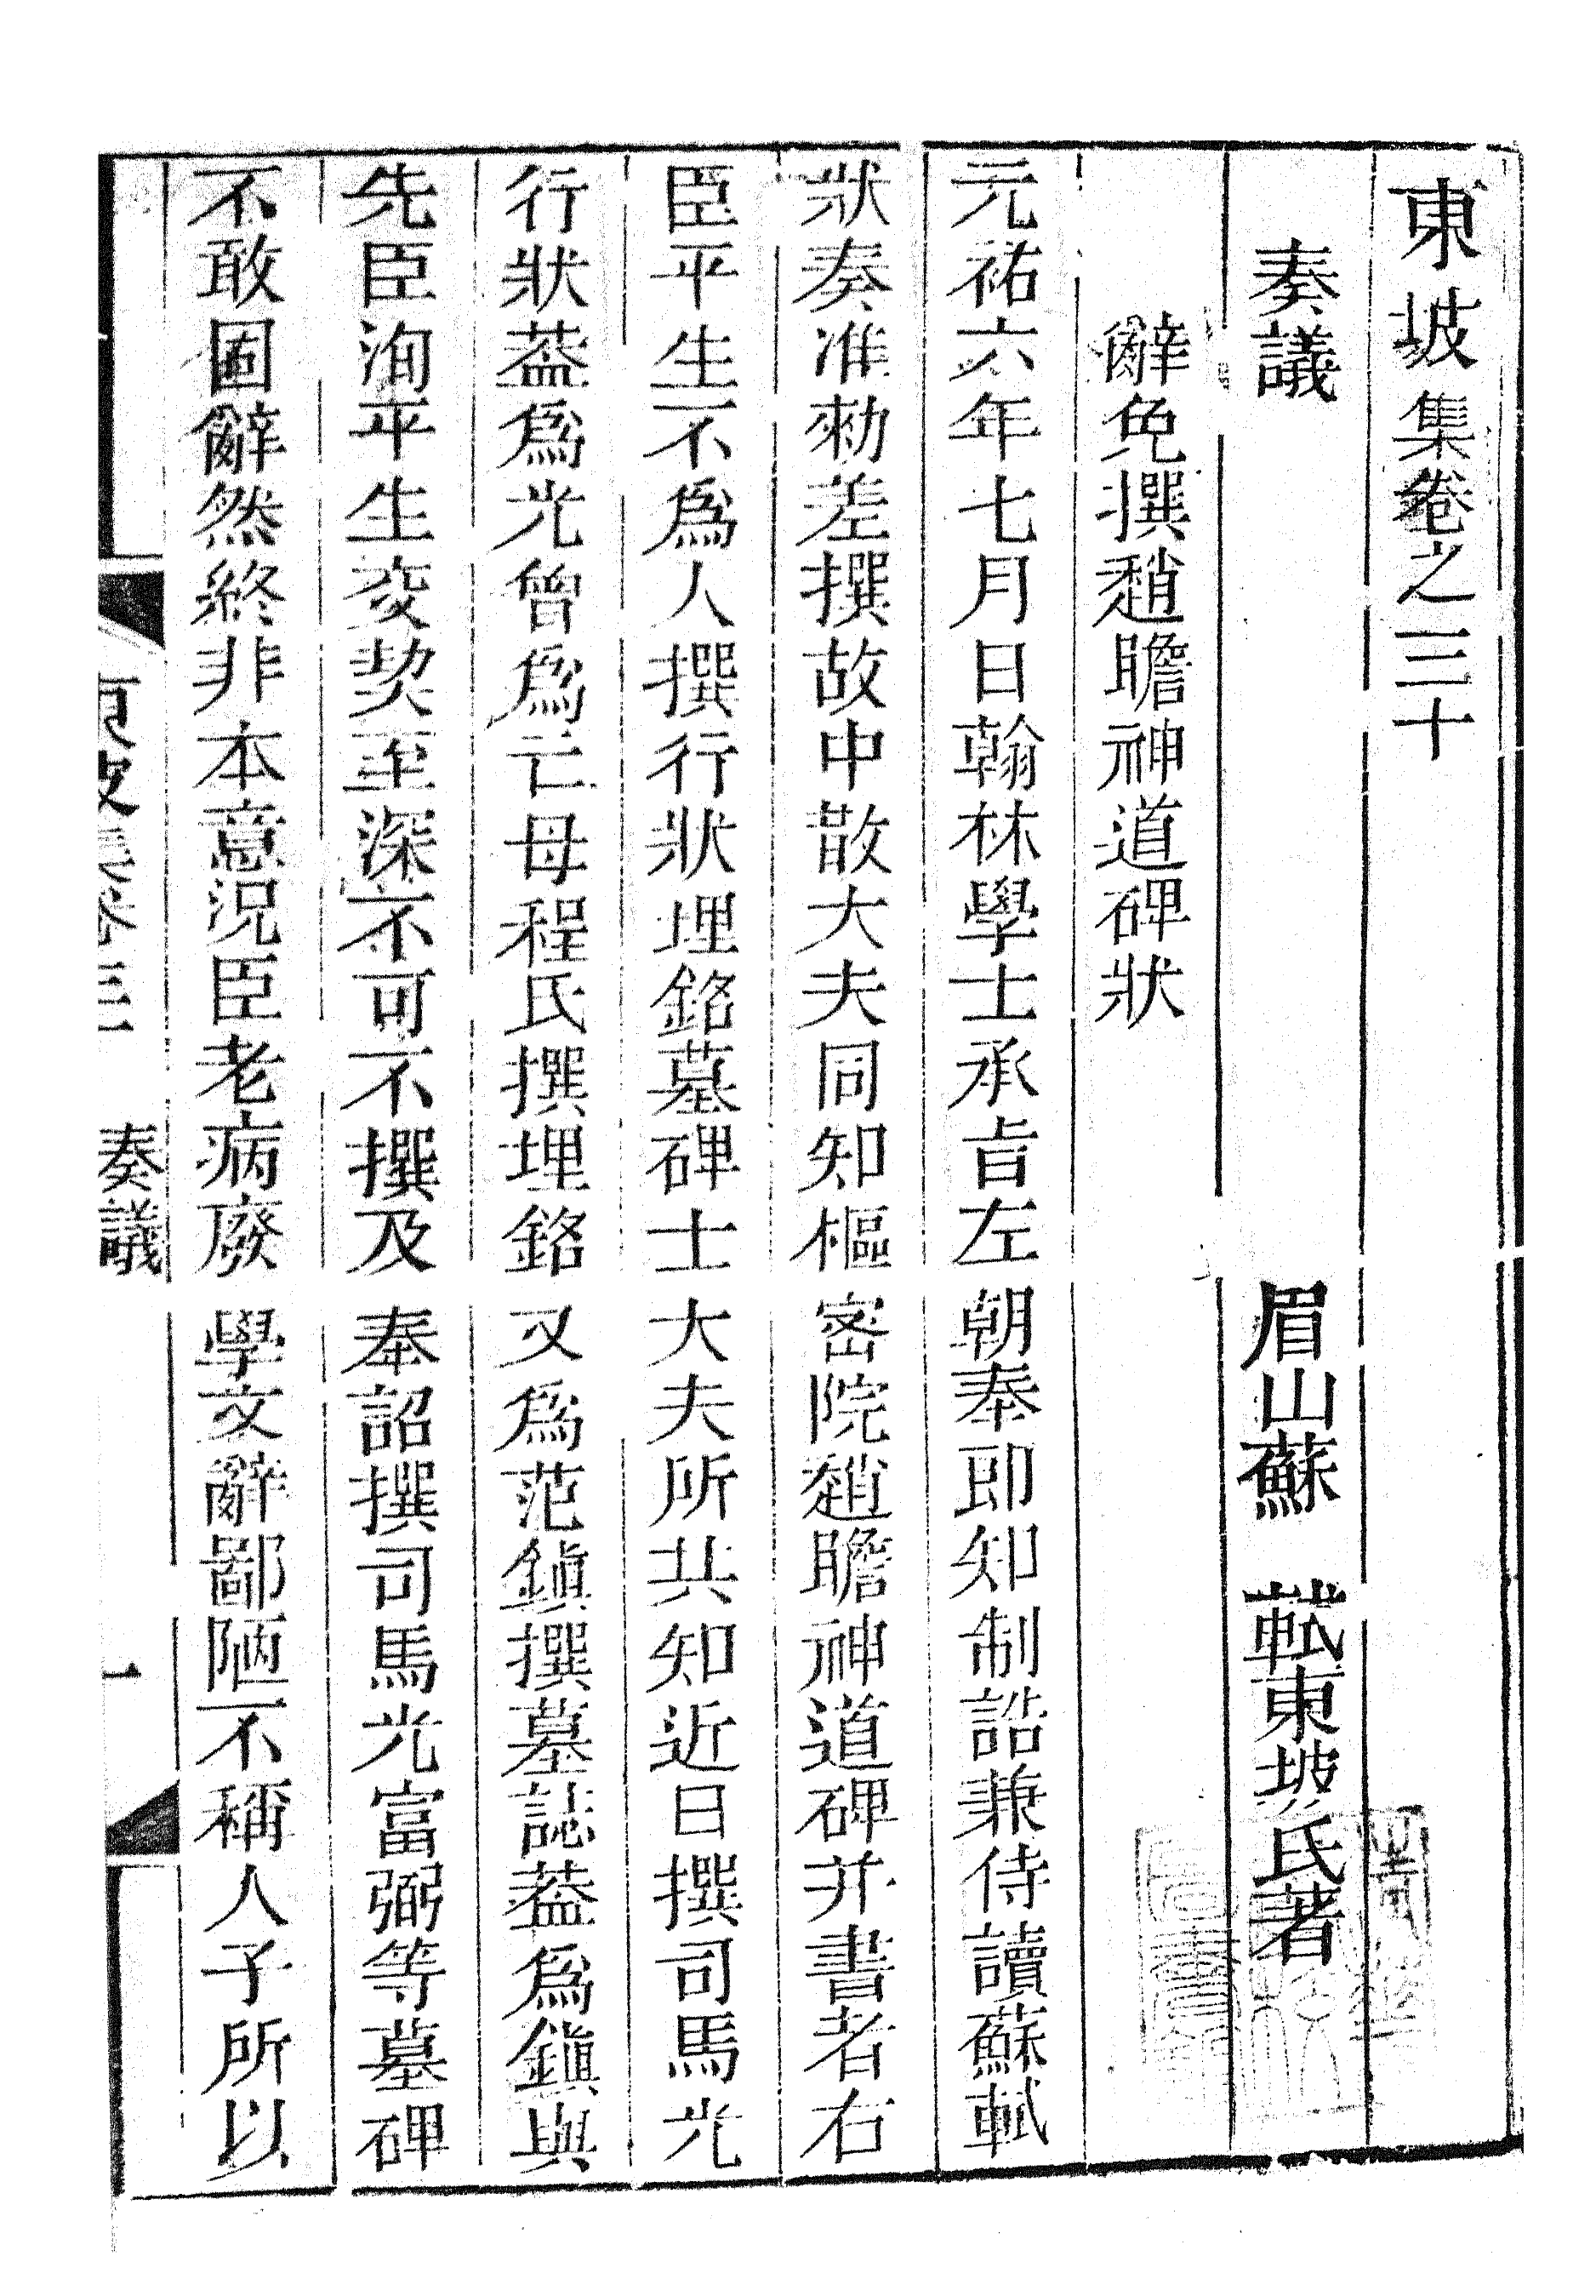 東坡集卷之三十
奏議　眉山蘇　軾東坡氏著
辭免撰趙瞻神道碑狀
元祐六年七月日翰林學士承旨左朝奉郎知制誥兼侍讀蘇軾
狀奏准勑差撰故中散大夫同知樞密院趙瞻神道碑并書者右
臣平生不爲人撰行狀埋銘墓碑士大夫所共知近日撰司馬光
行狀葢爲光曾爲亡母程氏撰埋銘又爲范鎭撰墓誌葢爲鎭與
先臣洵平生交契至深不可不撰及奉詔撰司馬光富弼等墓碑
不敢固辭然終非本意況臣老病廢學文辭鄙陋不稱人子所以
奏議　一